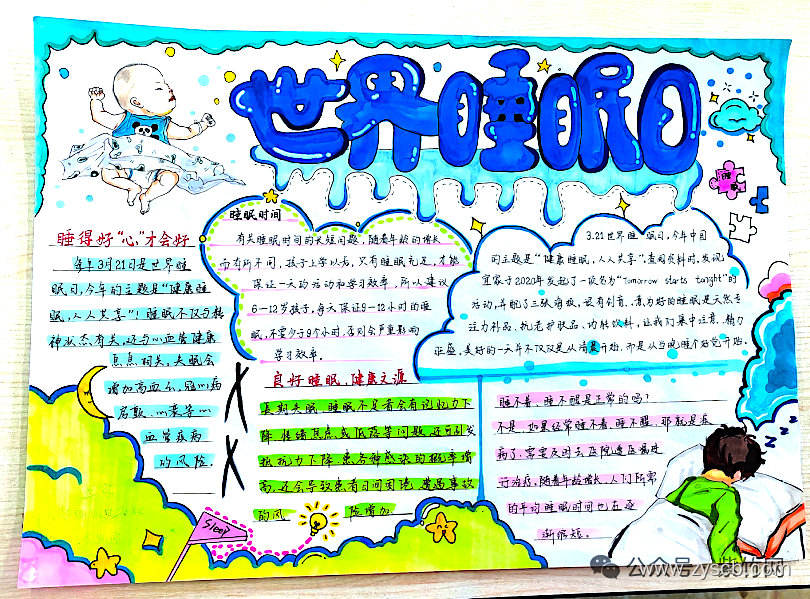 世界睡眠日
睡得好“心”才会好
每年3月21日是世界睡
眠日,今年的主题是“健康睡
眠,人人共享”!睡眠不仅与精
神状态有关,还与心血管健康
息息相关,失眠会
增加高血压,冠心病
心衰等心
血管疾病
的风险.
睡眠时间
有关睡眠时间的长短问题,随着年龄的增长
而有所不同,孩子上学以后,只有睡眠充足,才能
保证一天的活动和学习效率.所以建议
6-12岁孩子,每天保证9-12小时的睡
眠,不要少于9个小时,否则会严重影响
学习效率.
3.21世界睡眠日,今年中国
的主题是“健康睡眠,人人共享”.查阅资料时,发现
宜家于2020年发起了一波名为“Tomorrow starts tonight”的
活动,并配了三张海报,很有创意.
良好的睡眠是天然专
注力补品、抗老护肤品、功能饮料,让我们集中注意、精力
旺盛,美好的一天并不仅仅是从清晨开始,而是从当晚睡个好觉开始.
良好睡眠,健康之源
长期失眠,睡眠不足者会有记忆力下
降,情绪焦虑或低落等问题,还可引发
抵抗力下降,患各种感染的概率增
高,还会导致患者日间困倦,遭遇事故
的风险增加
睡不着,睡不醒是正常的吗?
不是,如果经常睡不着,睡不醒,那就是疾
病了,需要及时去医院遵医嘱进
行治疗,随着年龄增长,人们所需
的平均睡眠时间也在逐
渐缩短.
Sleep
睡
眠
z z z
公众号
www.zyscbl.com